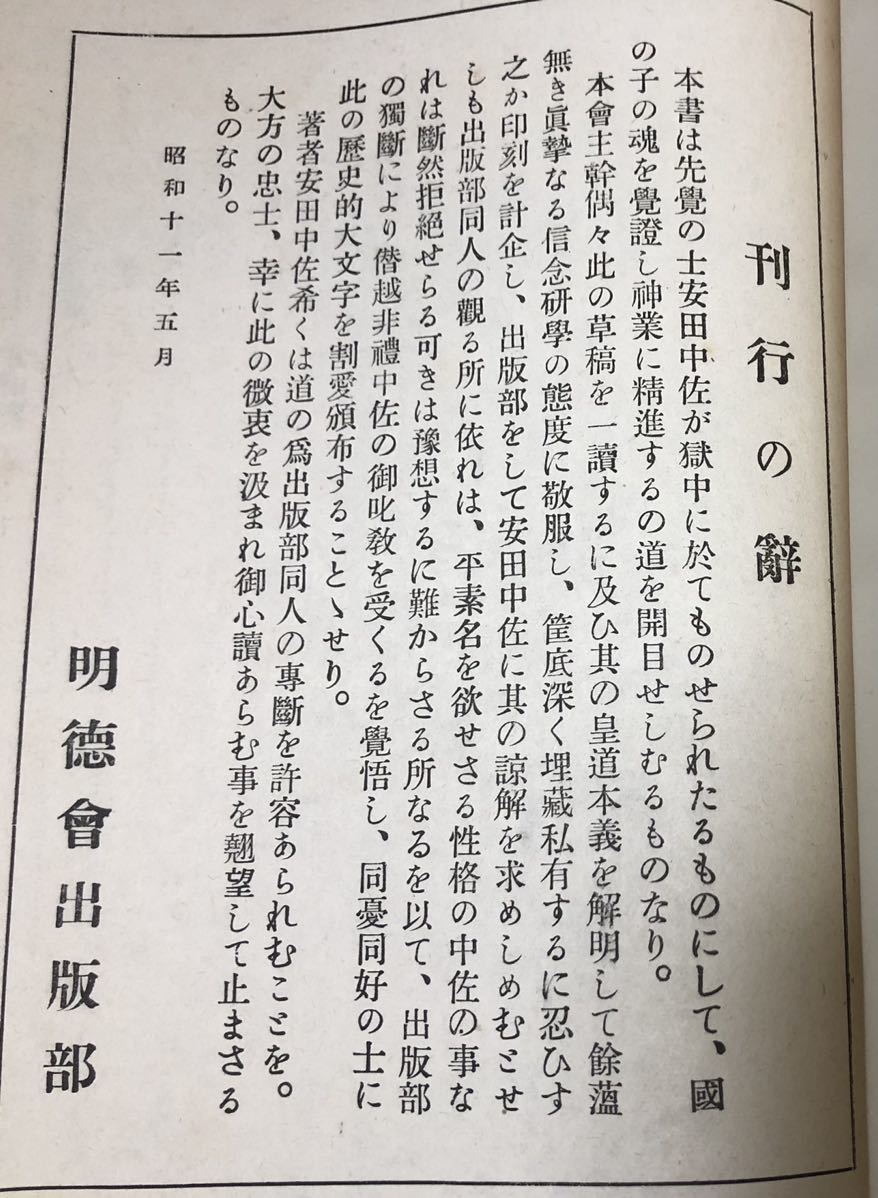 刊行の辭
本書は先覺の士安田中佐が獄中に於てものせられたるものにして、國
の子の魂を覺證し神業に精進するの道を開目せしむるものなり。
本會主幹偶々此の草稿を一讀するに及ひ其の皇道本義を解明して餘薀
無き眞摯なる信念硏學の態度に敬服し、筐底深く埋藏私有するに忍ひす
之か印刻を計企し、出版部をして安田中佐に其の諒解を求めしめむとせ
しも出版部同人の觀る所に依れは、平素名を欲せさる性格の中佐の事な
れは斷然拒絕せらる可きは豫想するに難からさる所なるを以て、出版部
の獨斷により僭越非禮中佐の御叱敎を受くるを覺悟し、同憂同好の士に
此の歷史的大文字を割愛頒布することゝせり。
著者安田中佐希くは道の爲出版部同人の專斷を許容あられむことを。
大方の忠士、幸に此の微衷を汲まれ御心讀あらむ事を翹望して止まさる
ものなり。
昭和十一年五月
明德會出版部